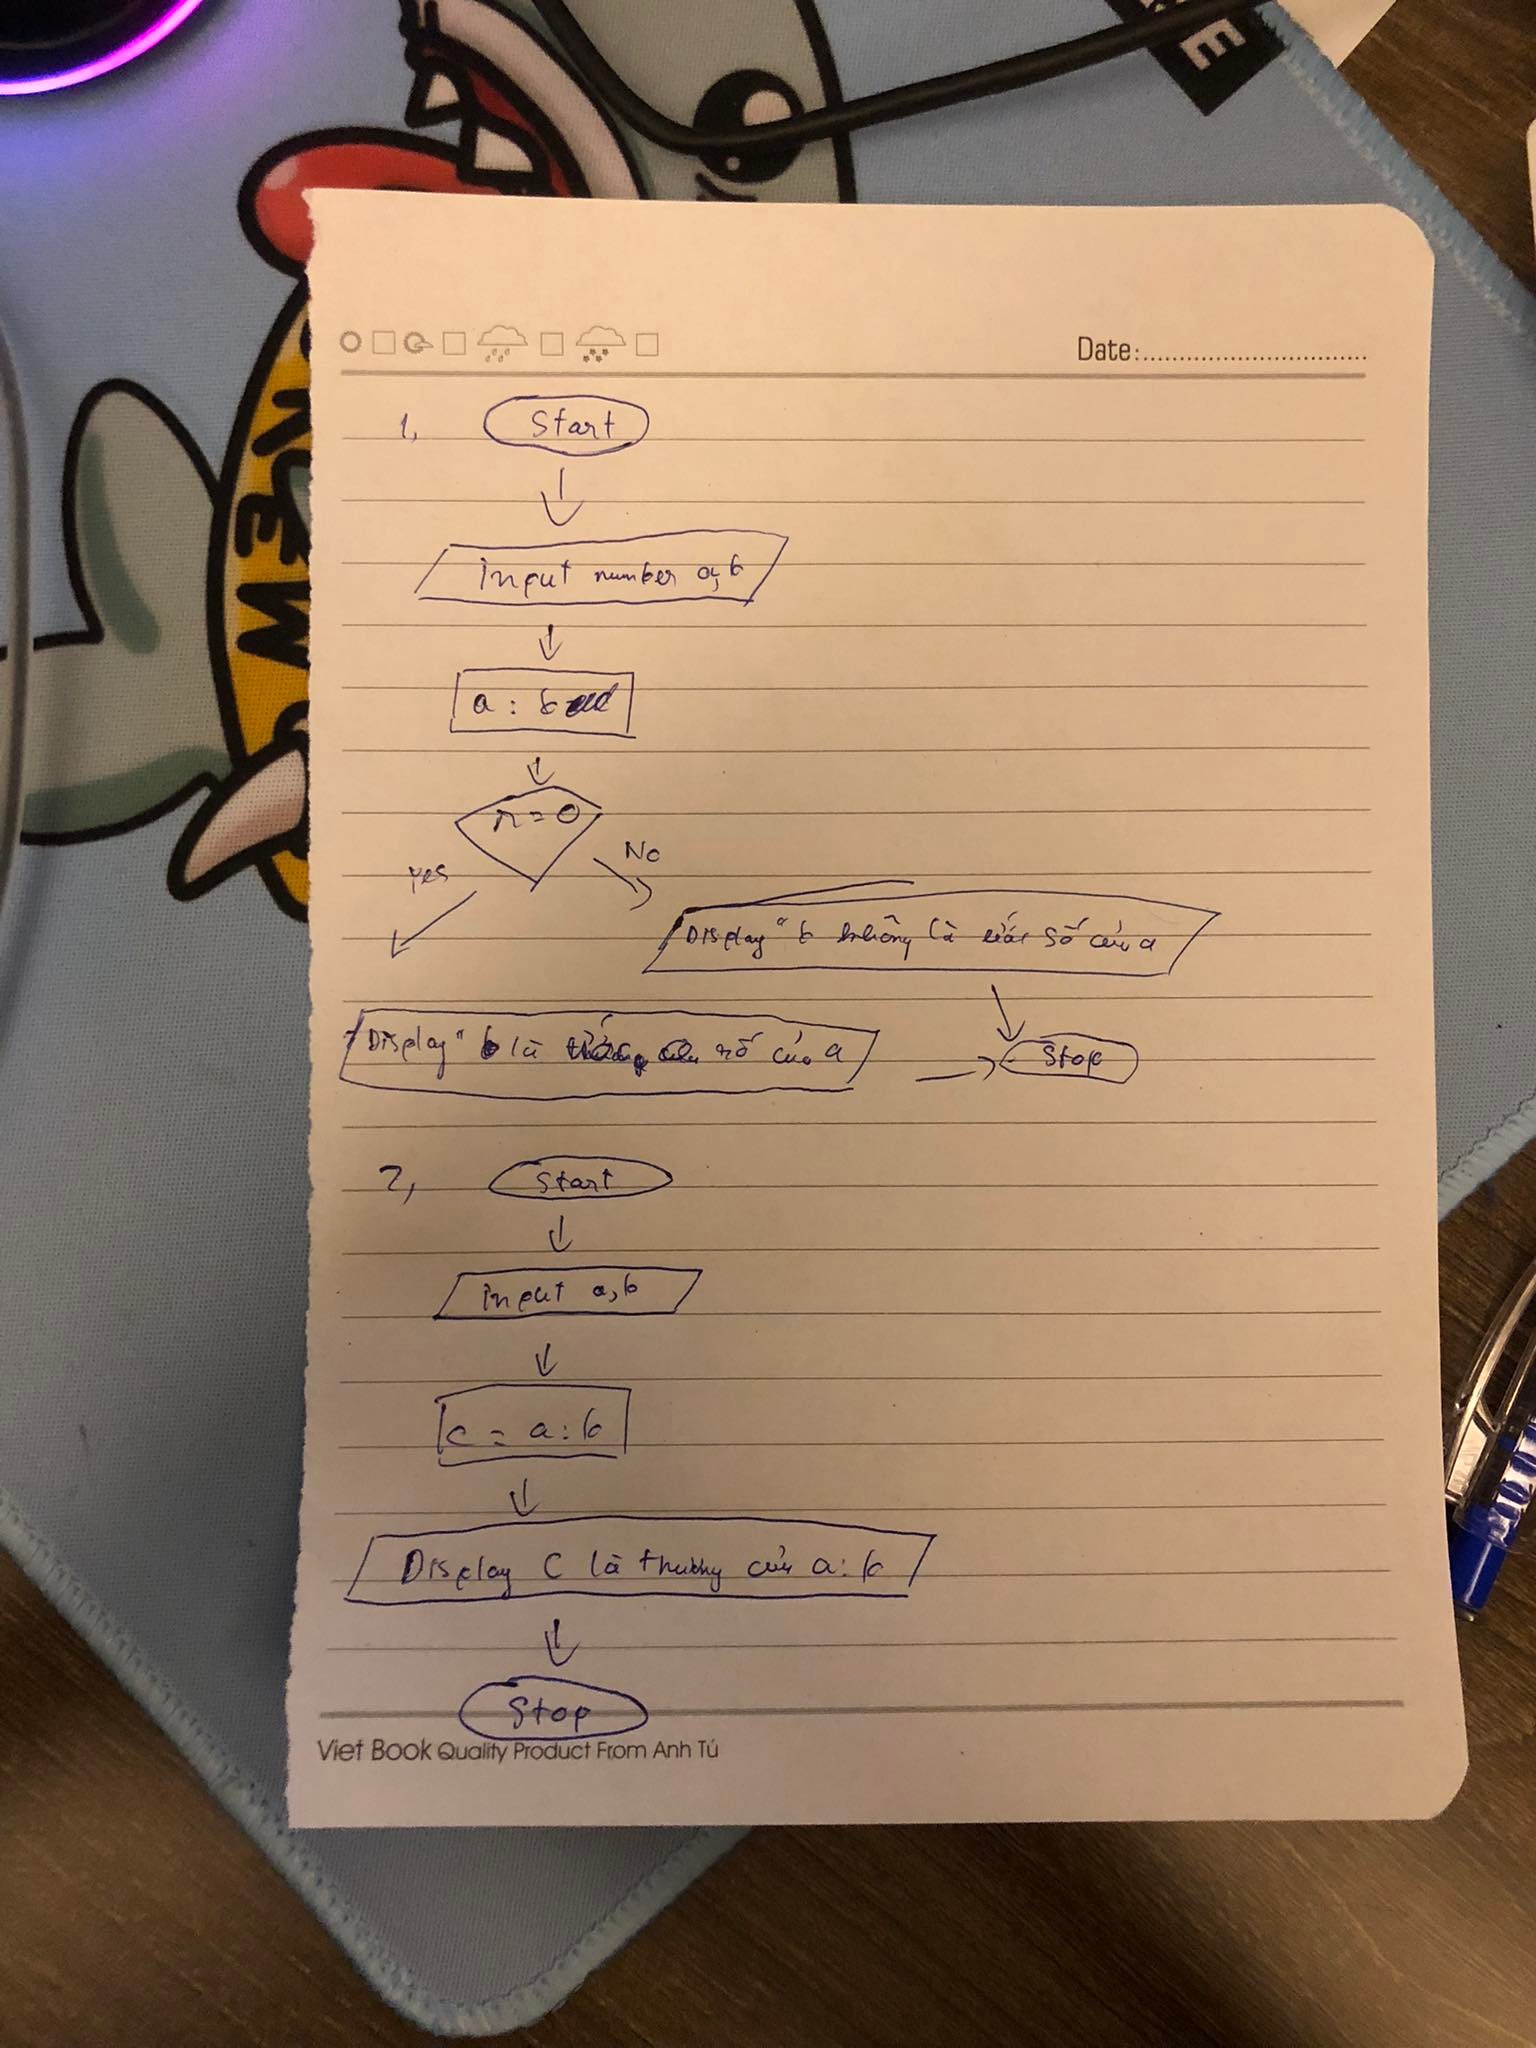 ƎE
MƎN
Date:
1, Start
Input number a, b
a : b
r = 0
Yes
No
Display " b không là ước số của a
Display " b là số của a
Stop
2, Start
input a, b
c = a : b
Display C là thương của a : b
Stop
Viet Book Quality Product From Anh Tú